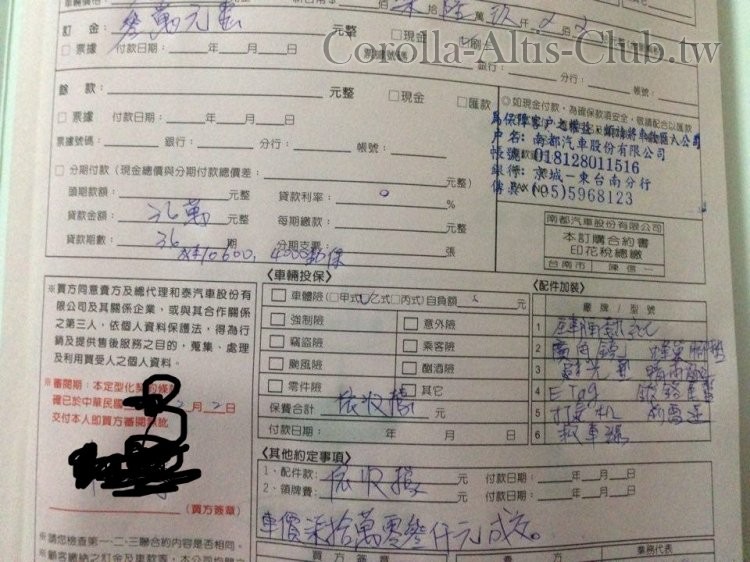 Corolla-Altis-Club.tw
訂金：參萬元 元整 □現金 □刷卡
□票據 付款日期： 年 月 日 票據號碼：
銀行： 分行： 帳號：
餘款： 元整 □現金 □匯款
□票據 付款日期： 年 月 日
票據號碼： 銀行： 分行： 帳號：
◎如現金付款，為確保款項安全，敬請配合以匯款
為保障客戶之權益，煩請將車款匯入公司
戶名：南都汽車股份有限公司
帳號：018128011516
銀行：京城－東台南分行
傳真(05)5968123
□分期付款（現金總價與分期付款總價差： 元整）
頭期款額： 元整 貸款利率：0 %
貸款金額：36萬 元整 每期繳款： 元整
貸款期數：36 期 分期支票： 張
10600,4000
南都汽車股份有限公司
本訂購合約書
印花稅總繳
台南市 陳信一
※買方同意貴方及總代理和泰汽車股份有
限公司及其關係企業，或與其合作關係
之第三人，依個人資料保護法，得為行
銷及提供售後服務之目的，蒐集、處理
及利用買受人之個人資料。
※審閱期：本定型化契約條
確已於中華民國 2月2日
交付本人即買方審閱 此
（買方簽章）
〈車輛投保〉
□車體險（□甲式□乙式□丙式）自負額 元
□強制險 □意外險
□竊盜險 □乘客險
□颱風險 □酗酒險
□零件險 □其它
保費合計：依收據 元
付款日期： 年 月 日
〈配件加裝〉
廠牌／型號
1
2 廣角鏡
3
4 ETag
5
6 救車線
〈其他約定事項〉
1、配件款： 元 付款日期： 年 月 日
2、領牌費：依收據 元 付款日期： 年 月 日
車價柒拾萬零參仟元成交。
※請您檢查第一、二、三聯合約內容是否相同。
※顧客繳納之訂金及車款等，本公司均開立
買方簽章 賣方 業務代表